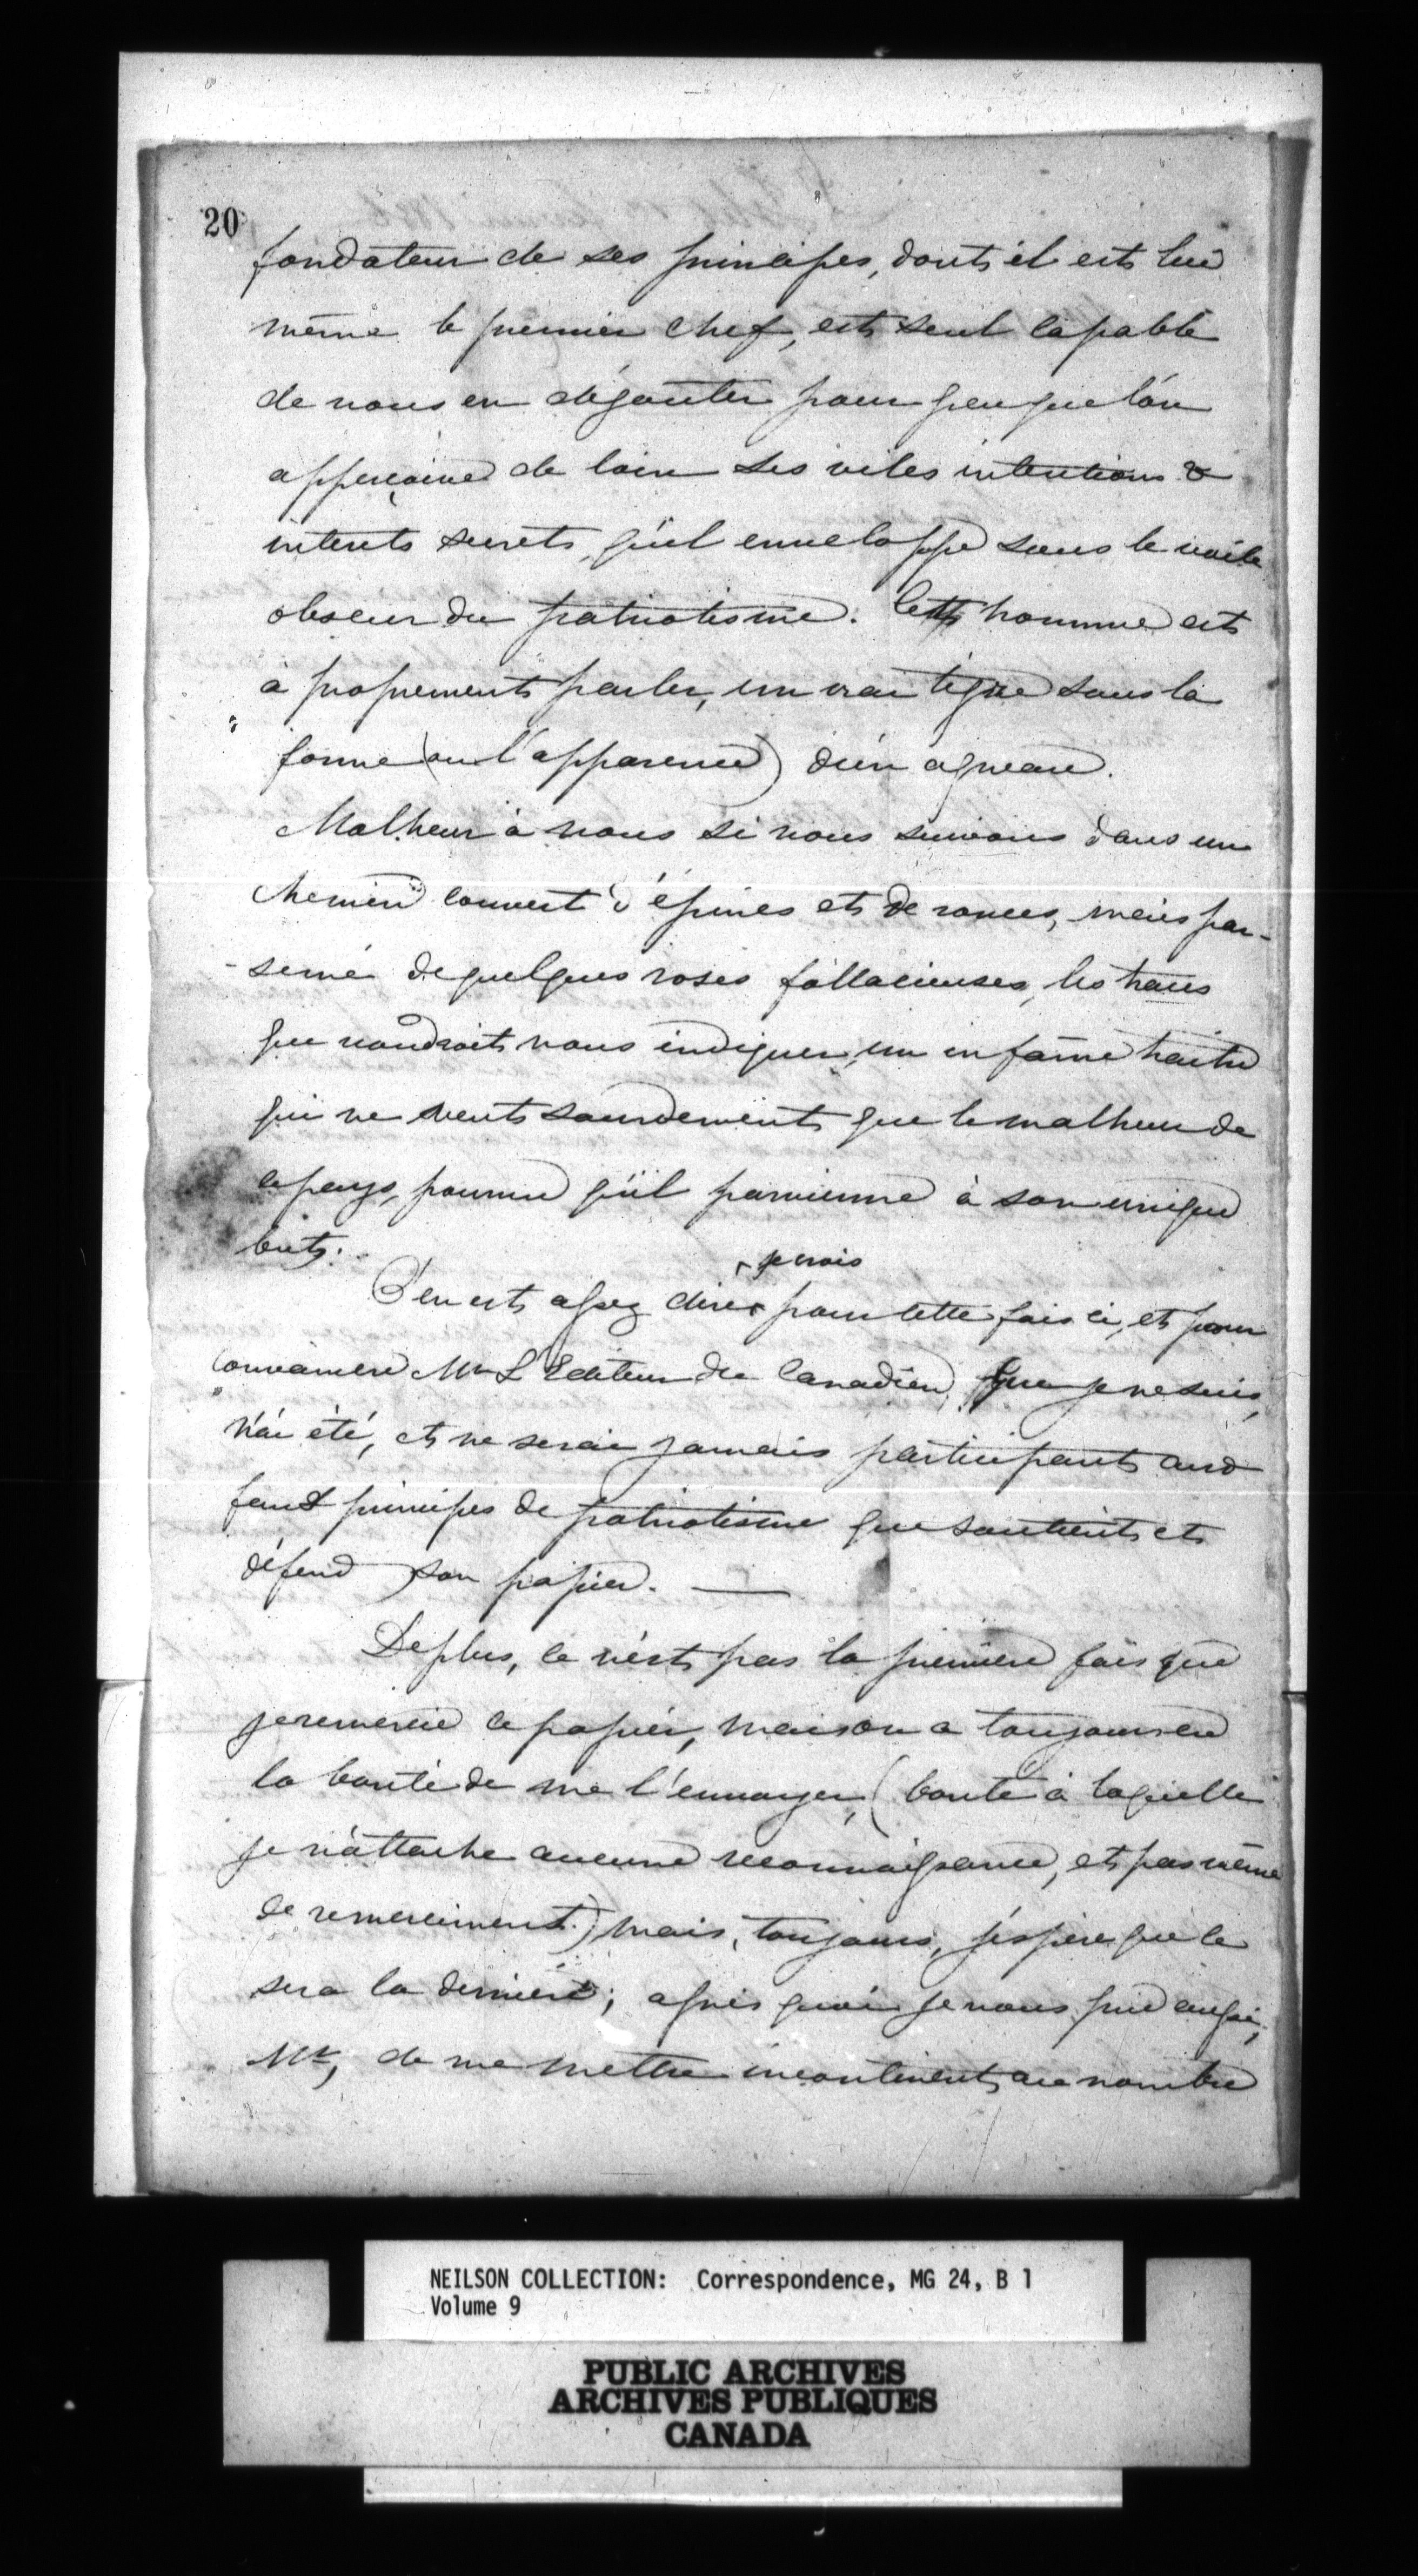 20
fondateur de ses principes, dont il est lui
même le premier chef, est seul capable
de nous en dégoûter pour peu que l'on
apperçoive de loin ses viles intentions &
interets secrets, qu'il enveloppe sous le voile
obscur du patriotisme. Cet homme est
à proprement parler, un vrai tigre sous la
forme (ou l'apparence) d'un agneau.
Malheur à nous si nous suivons dans un
chemin couvert d'épines et de ronces, mais par-
-semé de quelques roses fallacieuses, les traces
que voudroit nous indiquer, un infâme traitre
qui ne veut sourdement que le malheur de
ce pays, pourvu qu'il parvienne à son unique
but.
je crois
C'en est assez dire pour cette fois ci, et pour
convaincre Mr L'Editeur du Canadien, que je ne suis,
n'ai été, et ne serai jamais participant aux
faux principes de patriotisme que soutient et
défend son papier. —
De plus, ce n'est pas la première fois que
je remercie ce papier, mais on a toujours eu
la bonté de me l'envoyer, (bonté à laquelle
je n'attache aucune reconnaissance, et pas même
de remerciment.) mais, toujours, j'espère que ce
sera la dernière; après quoi je vous prie aussi,
Mr, de me mettre incontinent au nombre
NEILSON COLLECTION: Correspondence, MG 24, B 1
Volume 9
PUBLIC ARCHIVES
ARCHIVES PUBLIQUES
CANADA